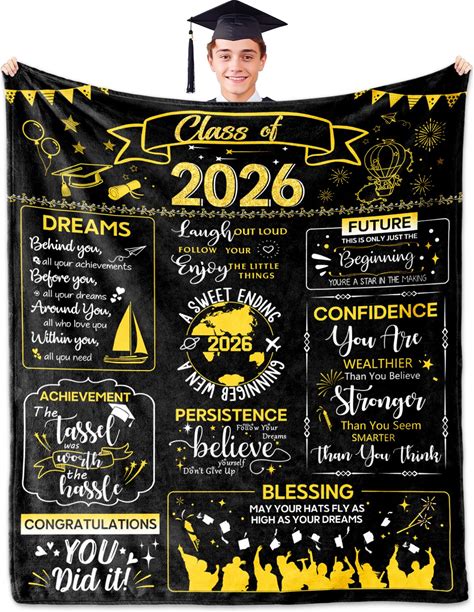 Class of
2026
DREAMS
Behind you,
all your achievements
Before you,
all your dreams
Around You,
all who love you
Within you,
all you need
Laugh OUT LOUD
FOLLOW YOUR
Enjoy THE LITTLE
THINGS
FUTURE
THIS IS ONLY JUST THE
Beginning
YOU'RE A STAR IN THE MAKING
A SWEET ENDING
2026
A NEW BEGINNING
CONFIDENCE
You Are
WEALTHIER
Than You Believe
Stronger
Than You Seem
SMARTER
Than You Think
ACHIEVEMENT
The
Tassel
was
worth
the
hassle
PERSISTENCE
Follow Your
Dreams
believe
yourself
Don't Give Up
CONGRATULATIONS
YOU
Did it!
BLESSING
MAY YOUR HATS FLY AS
HIGH AS YOUR DREAMS